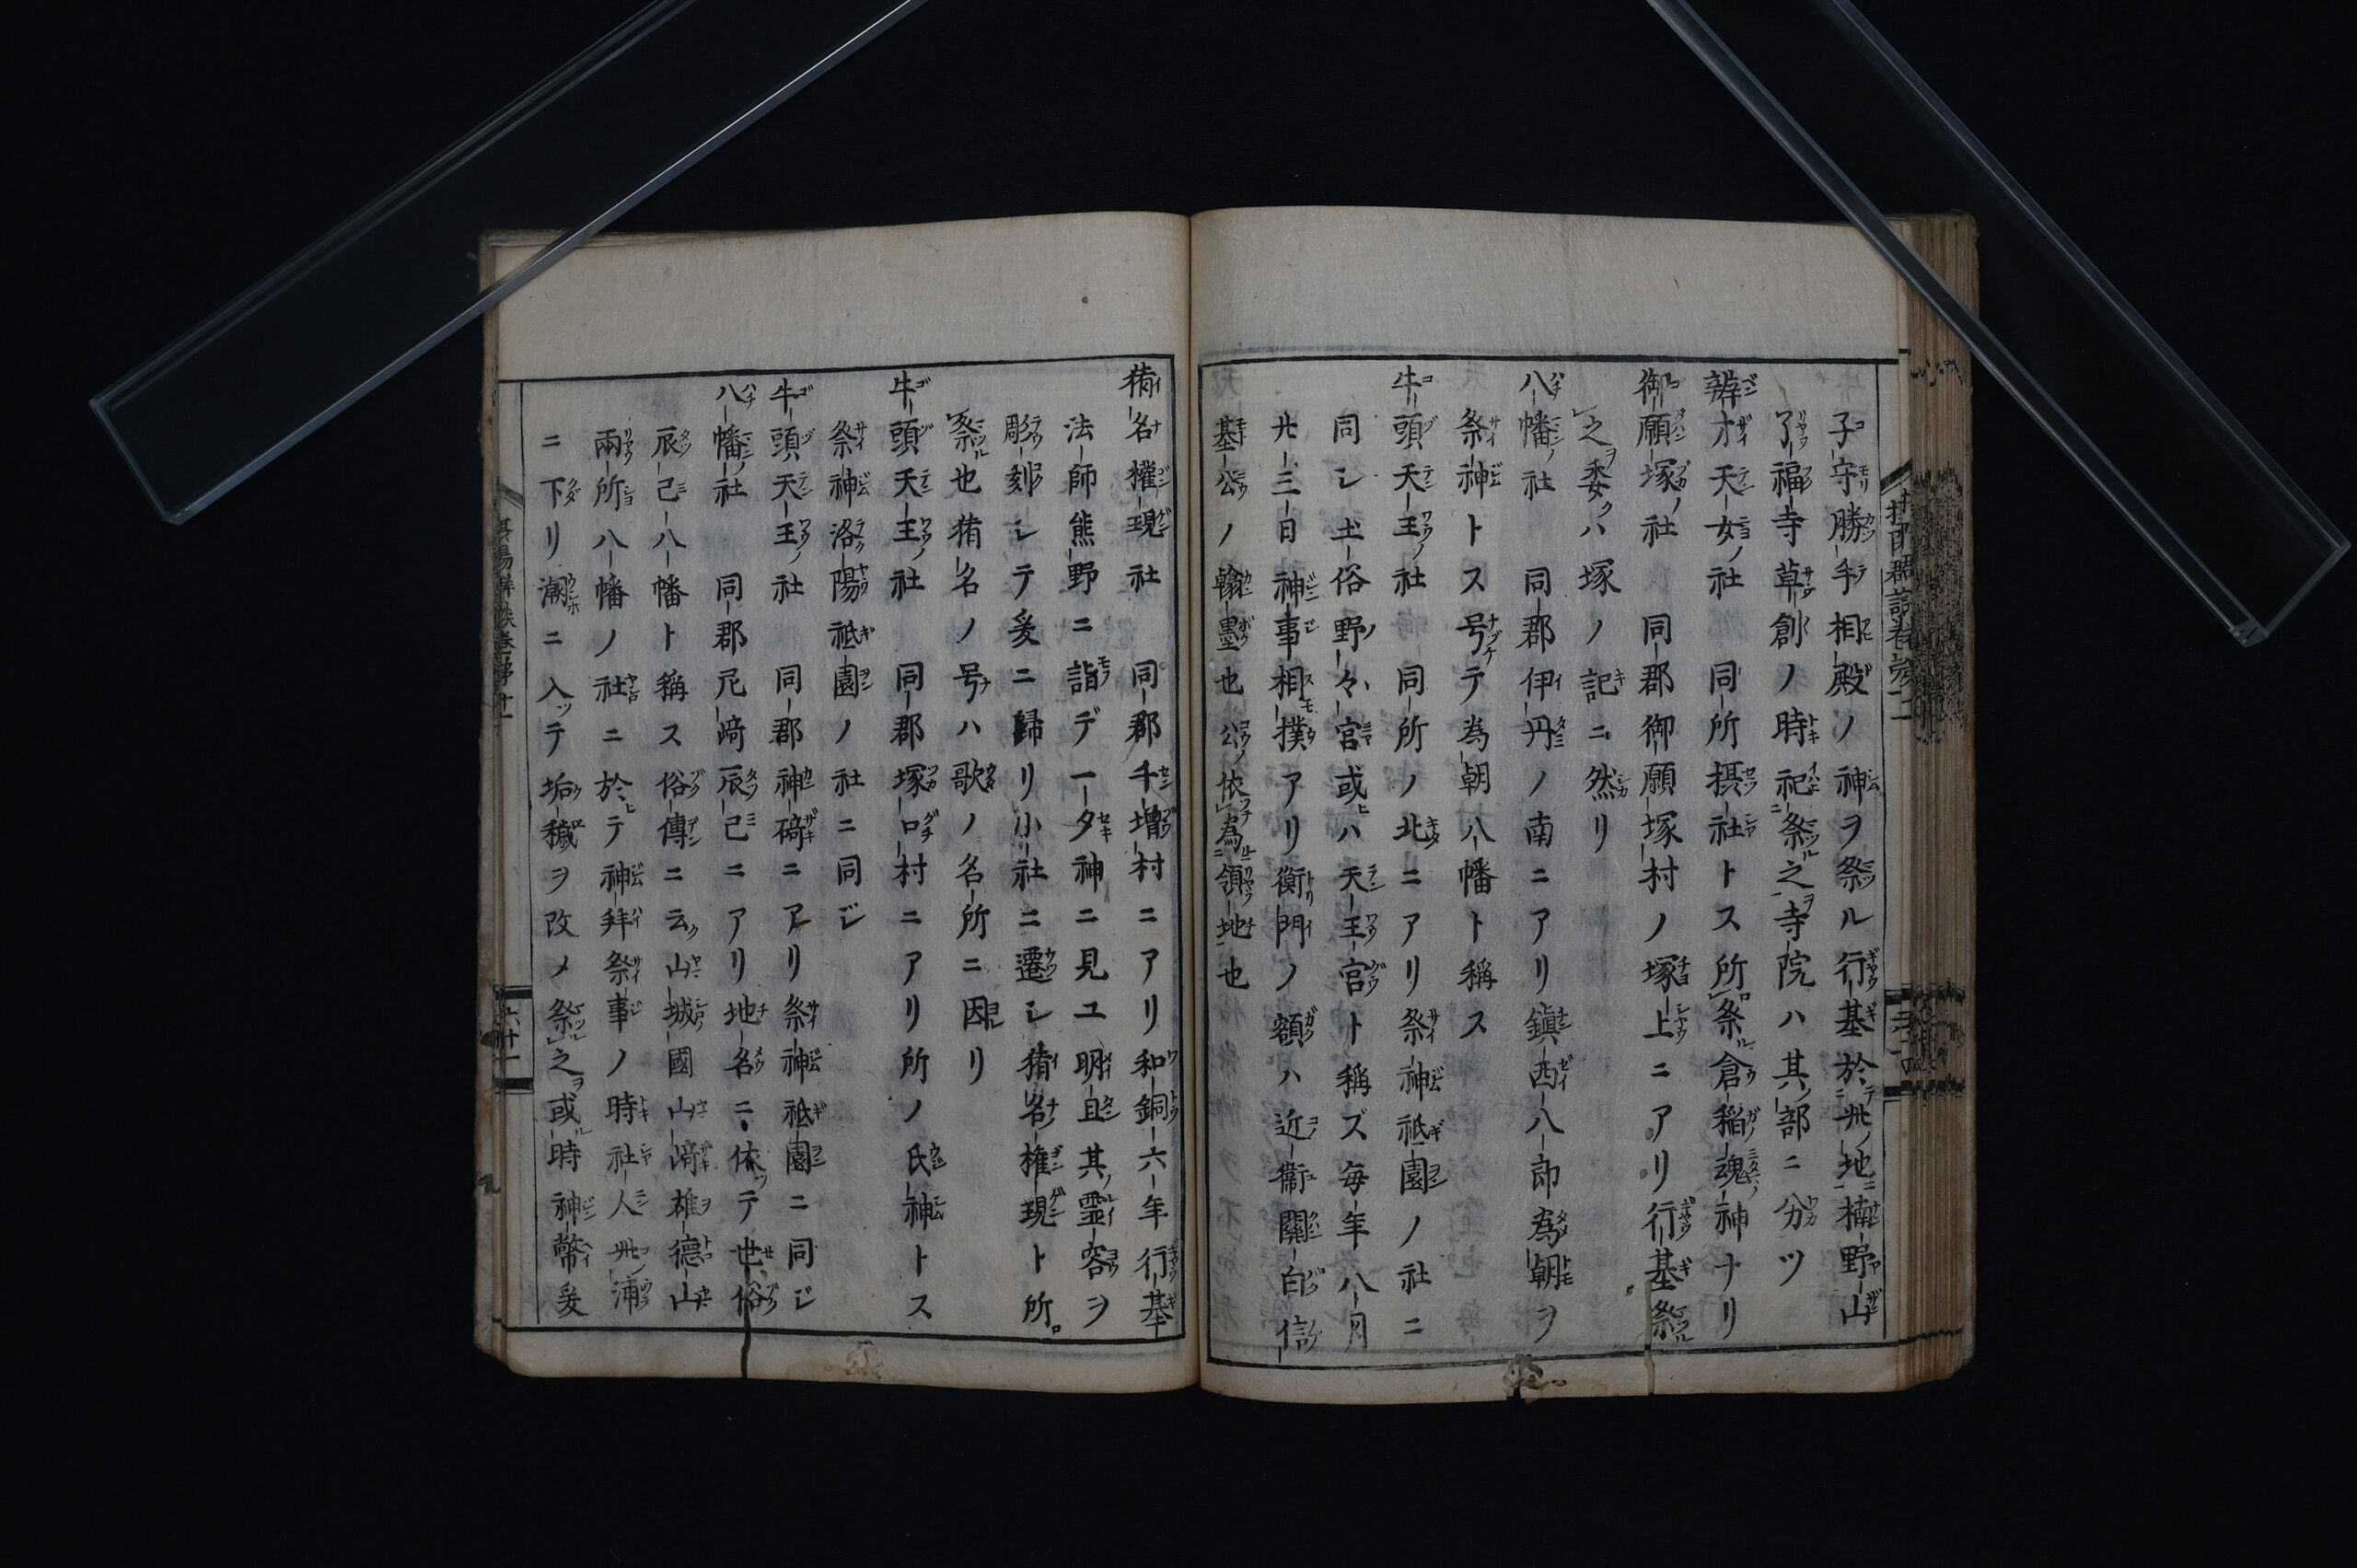 子守勝手相殿ノ神ヲ祭ル行基於此地楠野山
了福寺草創ノ時祀祭之寺院ハ其部ニ分ツ
辨才天女ノ社　同所摂社トス所祭倉稲魂神ナリ
御願塚ノ社　同郡御願塚村ノ塚上ニアリ行基祭
之委クハ塚ノ記ニ然リ
八幡ノ社　同郡伊丹ノ南ニアリ鎮西八郎為朝ヲ
祭神トス号テ為朝八幡ト稱ス
牛頭天王ノ社　同所ノ北ニアリ祭神祇園ノ社ニ
同シ土俗野々宮或ハ天王宮ト稱ズ毎年八月
廿三日神事相撲アリ衡門ノ額ハ近衞關白信
基公ノ翰墨也公依為領地也
猪名權現社　同郡千増村ニアリ和銅六年行基
法師熊野ニ詣デ一夕神ニ見ユ明旦其霊容ヲ
彫刻シテ爰ニ歸リ小社ニ遷シ猪名権現ト所
祭也猪名ノ号ハ歌ノ名所ニ因リ
牛頭天王ノ社　同郡塚口村ニアリ所ノ氏神トス
祭神洛陽祇園ノ社ニ同ジ
牛頭天王ノ社　同郡神﨑ニアリ祭神祇園ニ同ジ
八幡ノ社　同郡尼﨑辰己ニアリ地名ニ依テ世俗
辰己八幡ト稱ス俗傳ニ云ク山城國山﨑雄德山
兩所八幡ノ社ニ於テ神拜祭事ノ時社人此浦
ニ下リ潮ニ入ッテ垢穢ヲ改メ祭之或時神幣爰
六十一